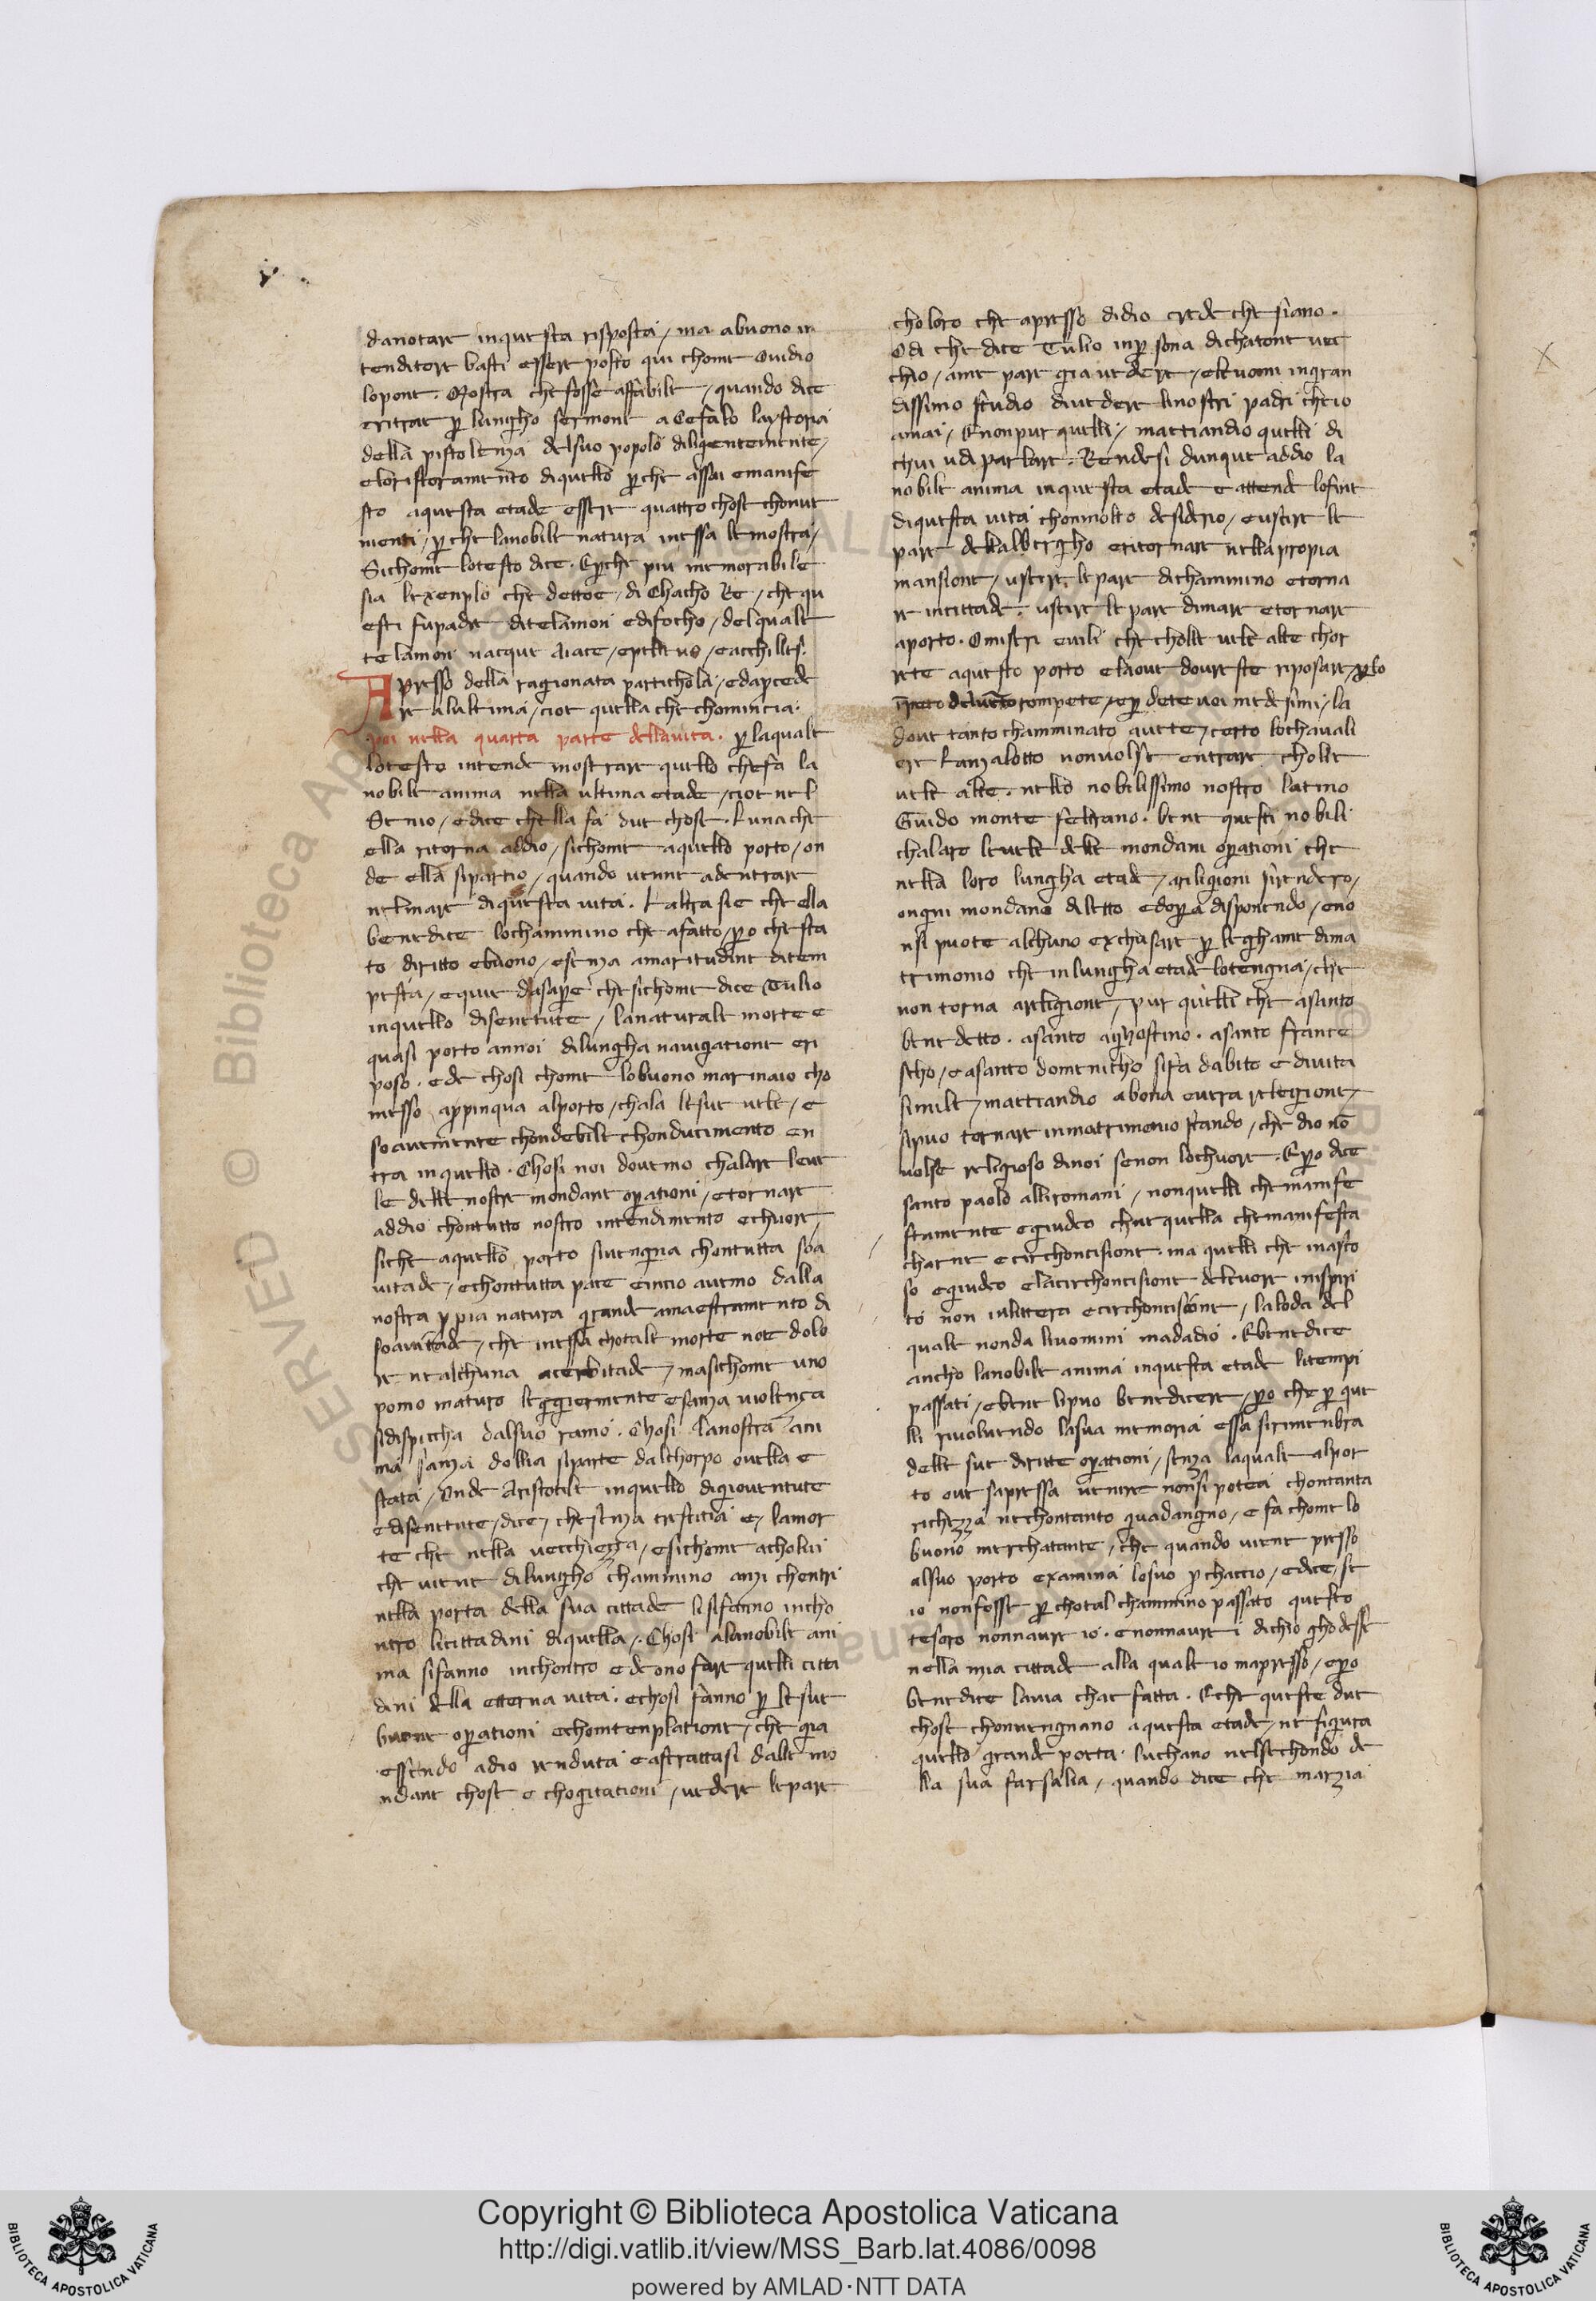 danotare inquesta risposta / ma abuono in
tenditore basti essere posto qui chome Ovidio
lopone. Mostra che fosse affabile / quando dice
eritrae per lungho sermone a Cefalo laystoria
della pistolenza delsuo popolo diligentemente /
eloristoramento diquello perche assai emanife
sto aquesta etade essere quattro chose chonue
nienti / per che lanobile natura inessa le mostra /
Sichome lotesto dice. Eperche piu memorabile
sia lexenplo che dettoe / di Chacho Re / che qu
esti fu padre ditelamon edifocho / delquale
telamon nacque Aiace / epelleus / eacchilles.
Apresso della ragionata partichola / e dapcede
re alultima / cioe quella che chomincia.
poi nella quarta parte dellauita. per laquale
lotesto intende mostrare quello chefa la
nobile anima nella ultima etade / cioe nel
Senio / edice chella fa due chose. Luna che
ella ritorna addio / sichome aquello porto / on
de ella sipartio / quando uenne adentrare
nelmare diquesta uita. Laltra sie che ella
benedice lochammino che afatto / pero che sta
to diritto ebuono / esenza amaritudine ditem
pesta / equie dasapere che sichome dice Tulio
inquello disenetute / lanaturale morte e
quasi porto annoi dilungha nauigatione eri
poso. ede chosi chome lobuono marinaio cho
messo appinqua alporto / chala lesue uele / e
soauemente chondebile chonducimento en
tra inquello. Chosi noi douemo chalare leue
le delle nostre mondane operationi / etornare
addio chontutto nostro intendimento echuore /
siche aquello porto siuengna chontutta soa
uitade / echontutta pace eincio auemo dalla
nostra propia natura grande amaestramento di
soauitade / che inessa chotale morte none dolo
re ne alchuna acerbitade / masichome uno
pomo maturo leggiermente esanza uiolenza
sidispiccha dalsuo ramo. Chosi lanostra ani
ma sanza doglia siparte dalchorpo ouella e
stata / Onde Aristotile inquello digiouentute
edisenetute / dice / chesenza trestitia e / lamor
te che nella uecchiezza / esichome acholui
che uiene dilungho chammino anzi chentri
nella porta della sua cittade li sifanno incho
ntro licittadini diquella /. Chosi alanobile ani
ma sifanno inchontro e deono fare quelli citta
dini della etterna uita. echosi fanno per lesue
buone operationi echontenplatione / che gia
essendo adio renduta eastrattasi dale mo
ndane chose e chogitationi / uedere le pare
choloro che apresso didio crede che siano.
Odi che dice Tulio inpersona dichatone uec
chio / ame pare gia uedere / eleuomi ingran
dissimo studio diuedere linostri padri cheio
amai / Enonpur quelli / mattiandio quelli di
chui udi parlare. Rendesi dunque addio la
nobile anima inquesta etade e attende lofine
diquesta uita chonmolto desiderio / euscire le
pare dellalbergho eritornare nellapropia
mansione / uscire le pare dichammino etorna
re incittade. uscire le pare dimare etornare
aporto. Omiseri euili che cholle uele alte chor
rete aquesto porto elaoue doureste riposare / per lo
inpeto deluento rompete / eperdete uoi medesimi / la
doue tanto chamminato auete / certo lochauali
ere Lanzalotto nonuolse entrare cholle
uele alte. nello nobilissimo nostro latino
Guido monte feltrano. bene questi nobili
chalaro leuele delle mondani operationi che
nella loro lungha etade / areligioni sirendero /
ongni mondano diletto edopera disponendo / eno
nsi puote alchuno exchusare per leghame dima
trimonio che inlungha etade lotengna / che
non torna areligione / pur quelli che asanto
benedetto. asanto aghostino. asanto france
scho / e asanto domenicho sifa dabito e diuita
simile / mattiandio abona euera religione /
sipuo tornare inmatrimonio stando / che dio no
uolse religioso dinoi senon lochuore. Epero dice
santo paolo alliromani / nonquelli chemanife
stamente egiudeo chee quella chemanifesta
charne e circhoncisione. ma quelli che inasco
so egiudeo elacirchoncisione delcuore inispiri
to non inlittera ecirchoncisione / laloda del
quale nonda liuomini madadio. Ebenedice
ancho lanobile anima inquesta etade litempi
passati / ebene lipuo benedicere / pero che per que
lli riuoluendo lasua memoria essa sirimenbra
delle sue diritte operationi / senza laquale alpor
to oue sapressa uenire nonsi potea chontanta
richezza ne chontanto guadangno / e fa chome lo
buono merchatante / che quando uiene presso
alsuo porto examina losuo prochaccio / edice / se
io nonfosse per chotal chammino passato questo
tesoro nonnaure io. enonnaurei dichio ghodesse
nella mia cittade alla quale io mapresso / epero
benedice lauia chae fatta. Eche queste due
chose chonuengnano aquesta etade / ne figura
quello grande poeta luchano nelsechondo de
lla sua farsalia / quando dice che marzia
Copyright © Biblioteca Apostolica Vaticana
http://digi.vatlib.it/view/MSS_Barb.lat.4086/0098
powered by AMLAD·NTT DATA
BIBLIOTECA APOSTOLICA VATICANA
BIBLIOTECA APOSTOLICA VATICANA